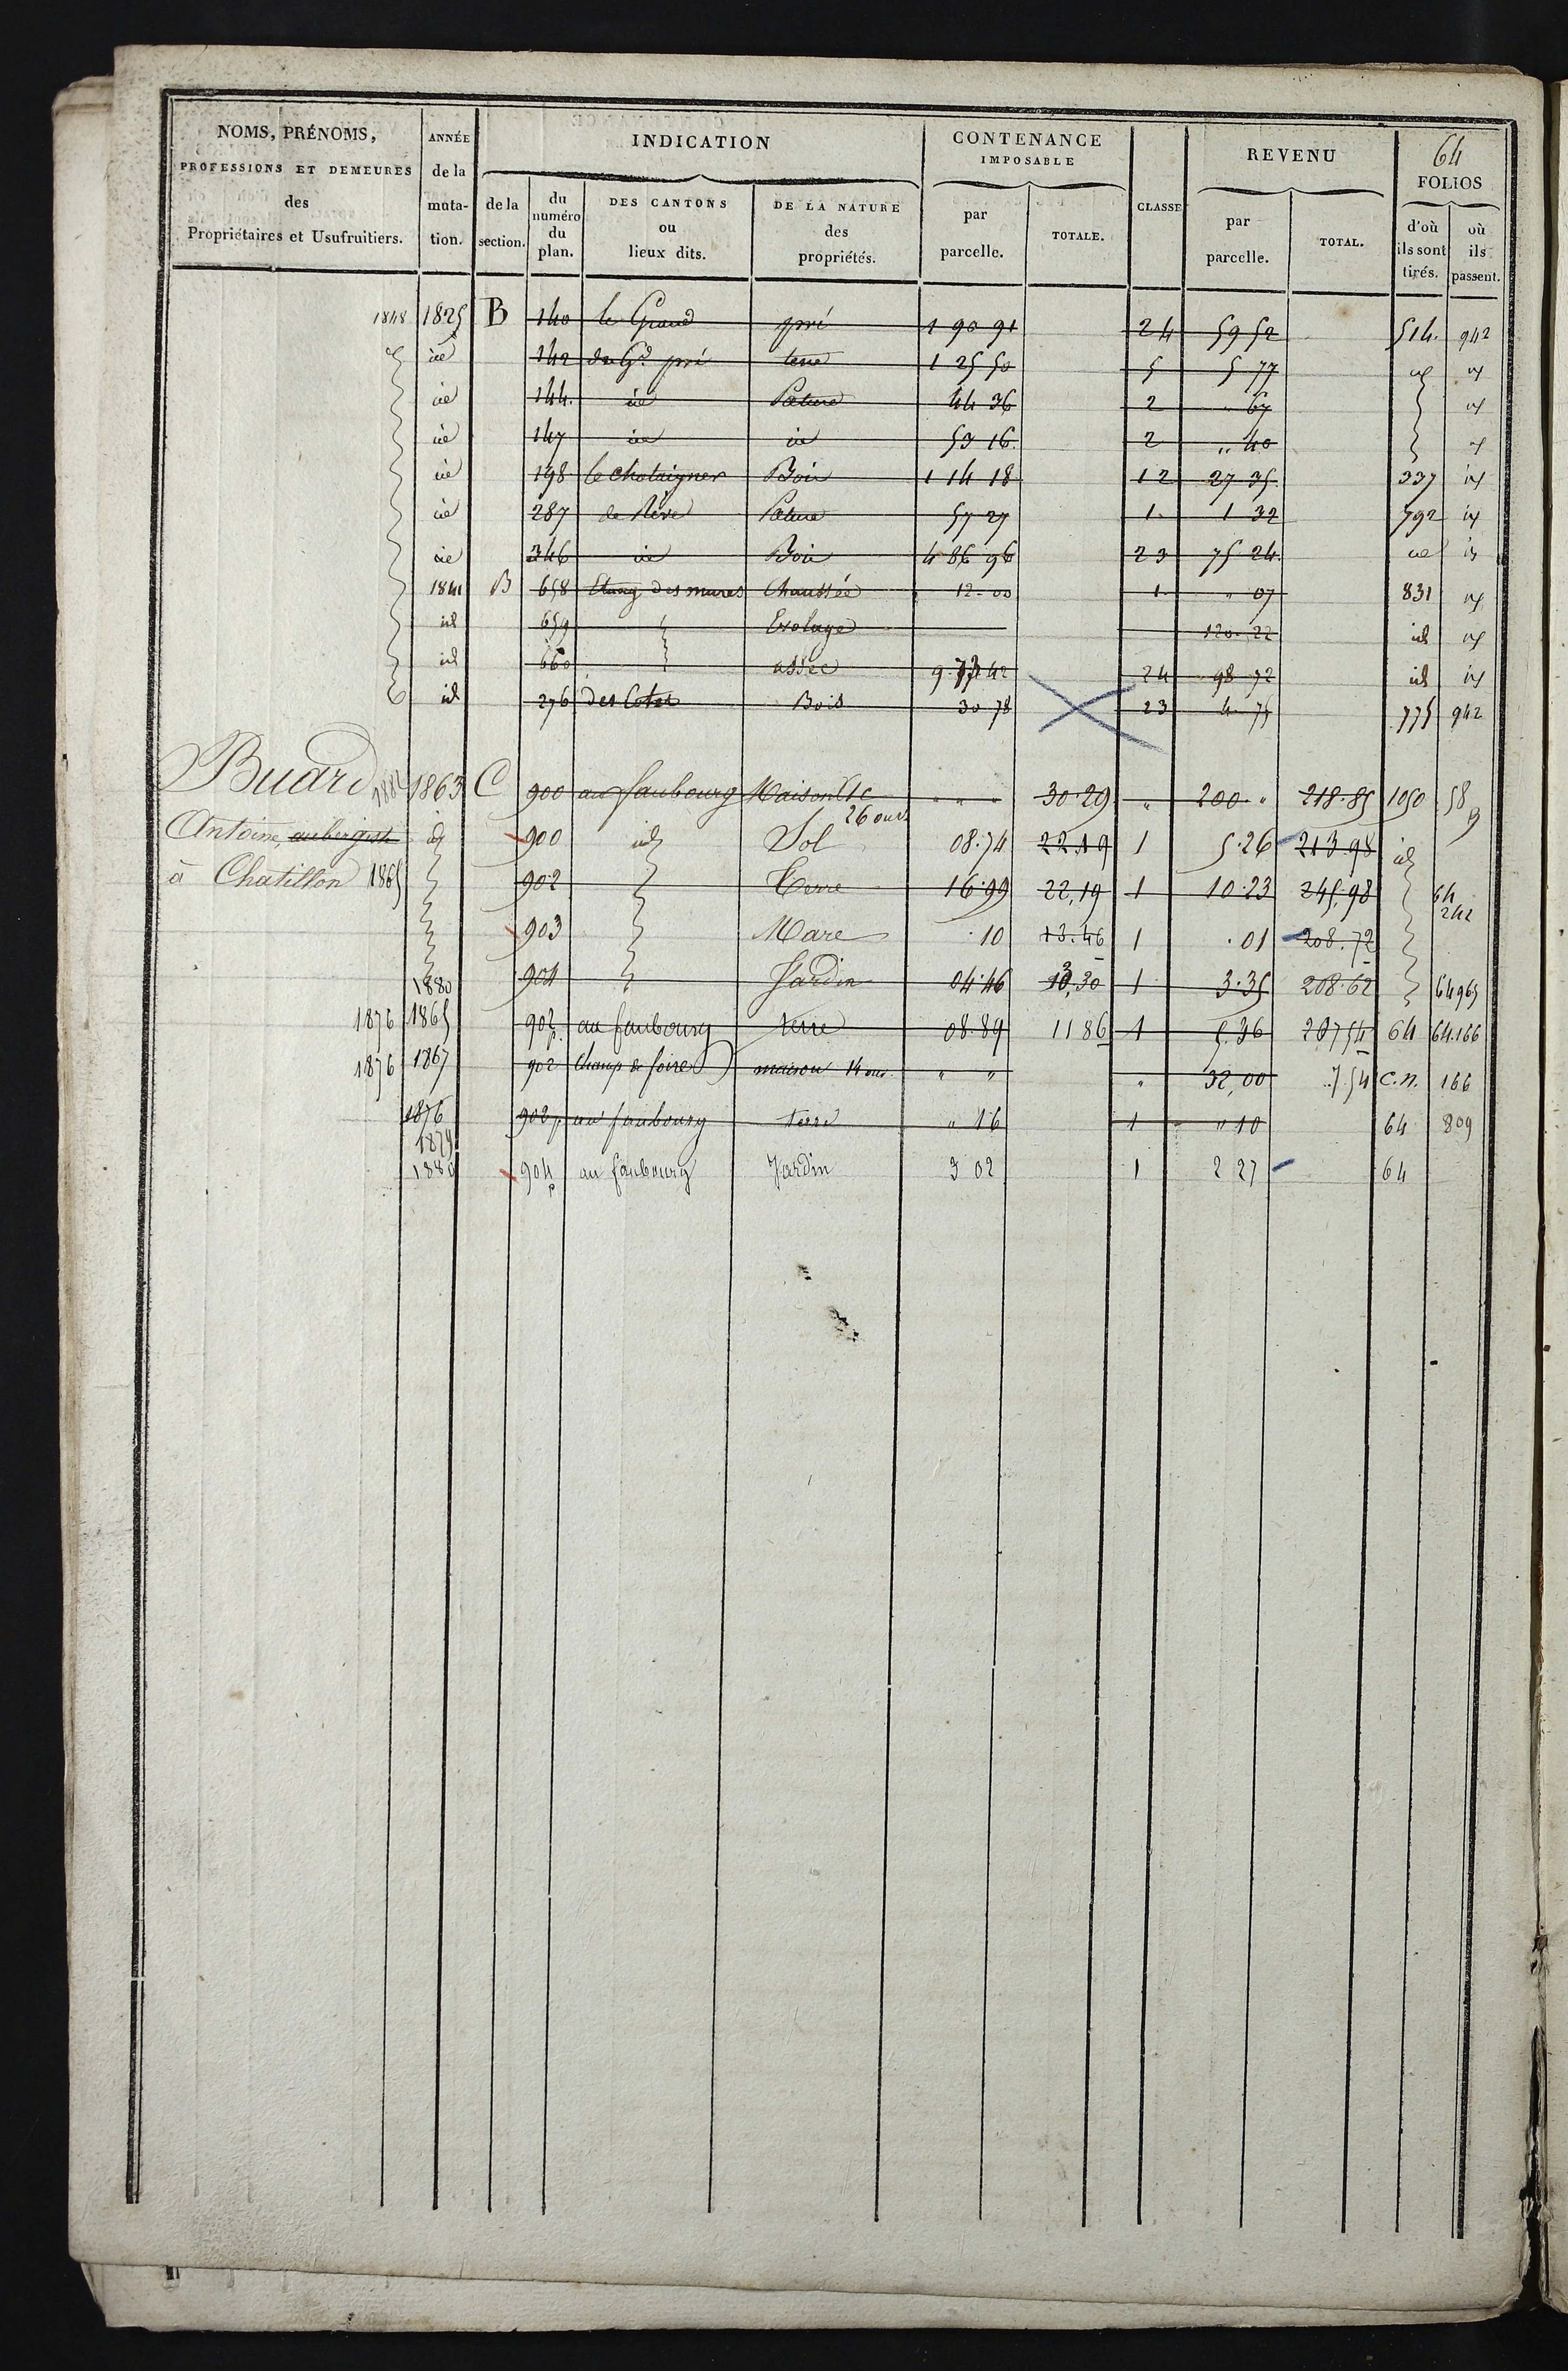 64
NOMS, PRÉNOMS, PROFESSIONS ET DEMEURES des Propriétaires et Usufruitiers.
ANNÉE de la muta- tion.
INDICATION
de la section.
du numéro du plan.
DES CANTONS ou lieux dits.
DE LA NATURE des propriétés.
CONTENANCE IMPOSABLE
par parcelle.
TOTALE.
CLASSE
REVENU
par parcelle.
TOTAL.
FOLIOS
d'où ils sont tirés.
où ils passent.
1848 1825 B 140 le Grand pré 1 90 91 24 59 52 514. 942
id 142 du Gd pré terre 1 25 50 5 5 77 id id
id 144. id Pature 44 36 2 " 67 id
id 147 id id 53 16. 2 " 40 id
id 198 le chataigner Bois 1 14 18 12 27 35. 337 id
id 287 Pature 57 27 1. 1 32 792 id
id 346 id Bois 4 86 96 23 75 24. id id
1841 B 658 Etang des mures Chaussée 12-00 1 " 07 831 id
id 659 Evolage 120. 22 id id
id 660 assec 9. 73 42 24 98 72 id id
id 276 des Cotes Bois 30 78 23 4. 75 775 942
Buard 1863 C 900 au faubourg Maison &c 26 ouv " " " 30.29 " 200 " 218.85 1050 58
Antoine, aubergiste id 900 id Sol 08.74 22.19 1 5.26 213 98 id
à Chatillon 1865 902 Terre 16.99 22,19 1 10.23 245.98 64 242
903 Mare .10 13.46 1 .01 208.72
1880 904 Jardin 04.46 1 3.35 208.62 64 965
1876 1865 902p. au faubourg terre 08.89 11 86 1 5.36 207 54 64 64.166
1876 1867 902 Champ de foire maison 14 ouv. " " " 32,00 7.54 C.N. 166
1876 902p au faubourg terre " 16 1 " 10 64 809
1879
1880 904p au faubourg Jardin 3 02 1 2 27 64